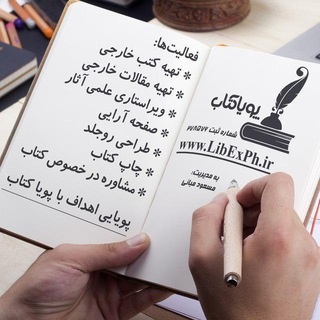 فعالیت‌ها:
* تهیه کتب خارجی
* تهیه مقالات خارجی
* ویراستاری علمی آثار
* صفحه آرایی
* طراحی روجلد
* چاپ کتاب
* مشاوره در خصوص کتاب
پویایی اهداف با پویا کتاب
پویاکتاب
www.LibExPh.ir
به مدیریت:
مسعود مبانی